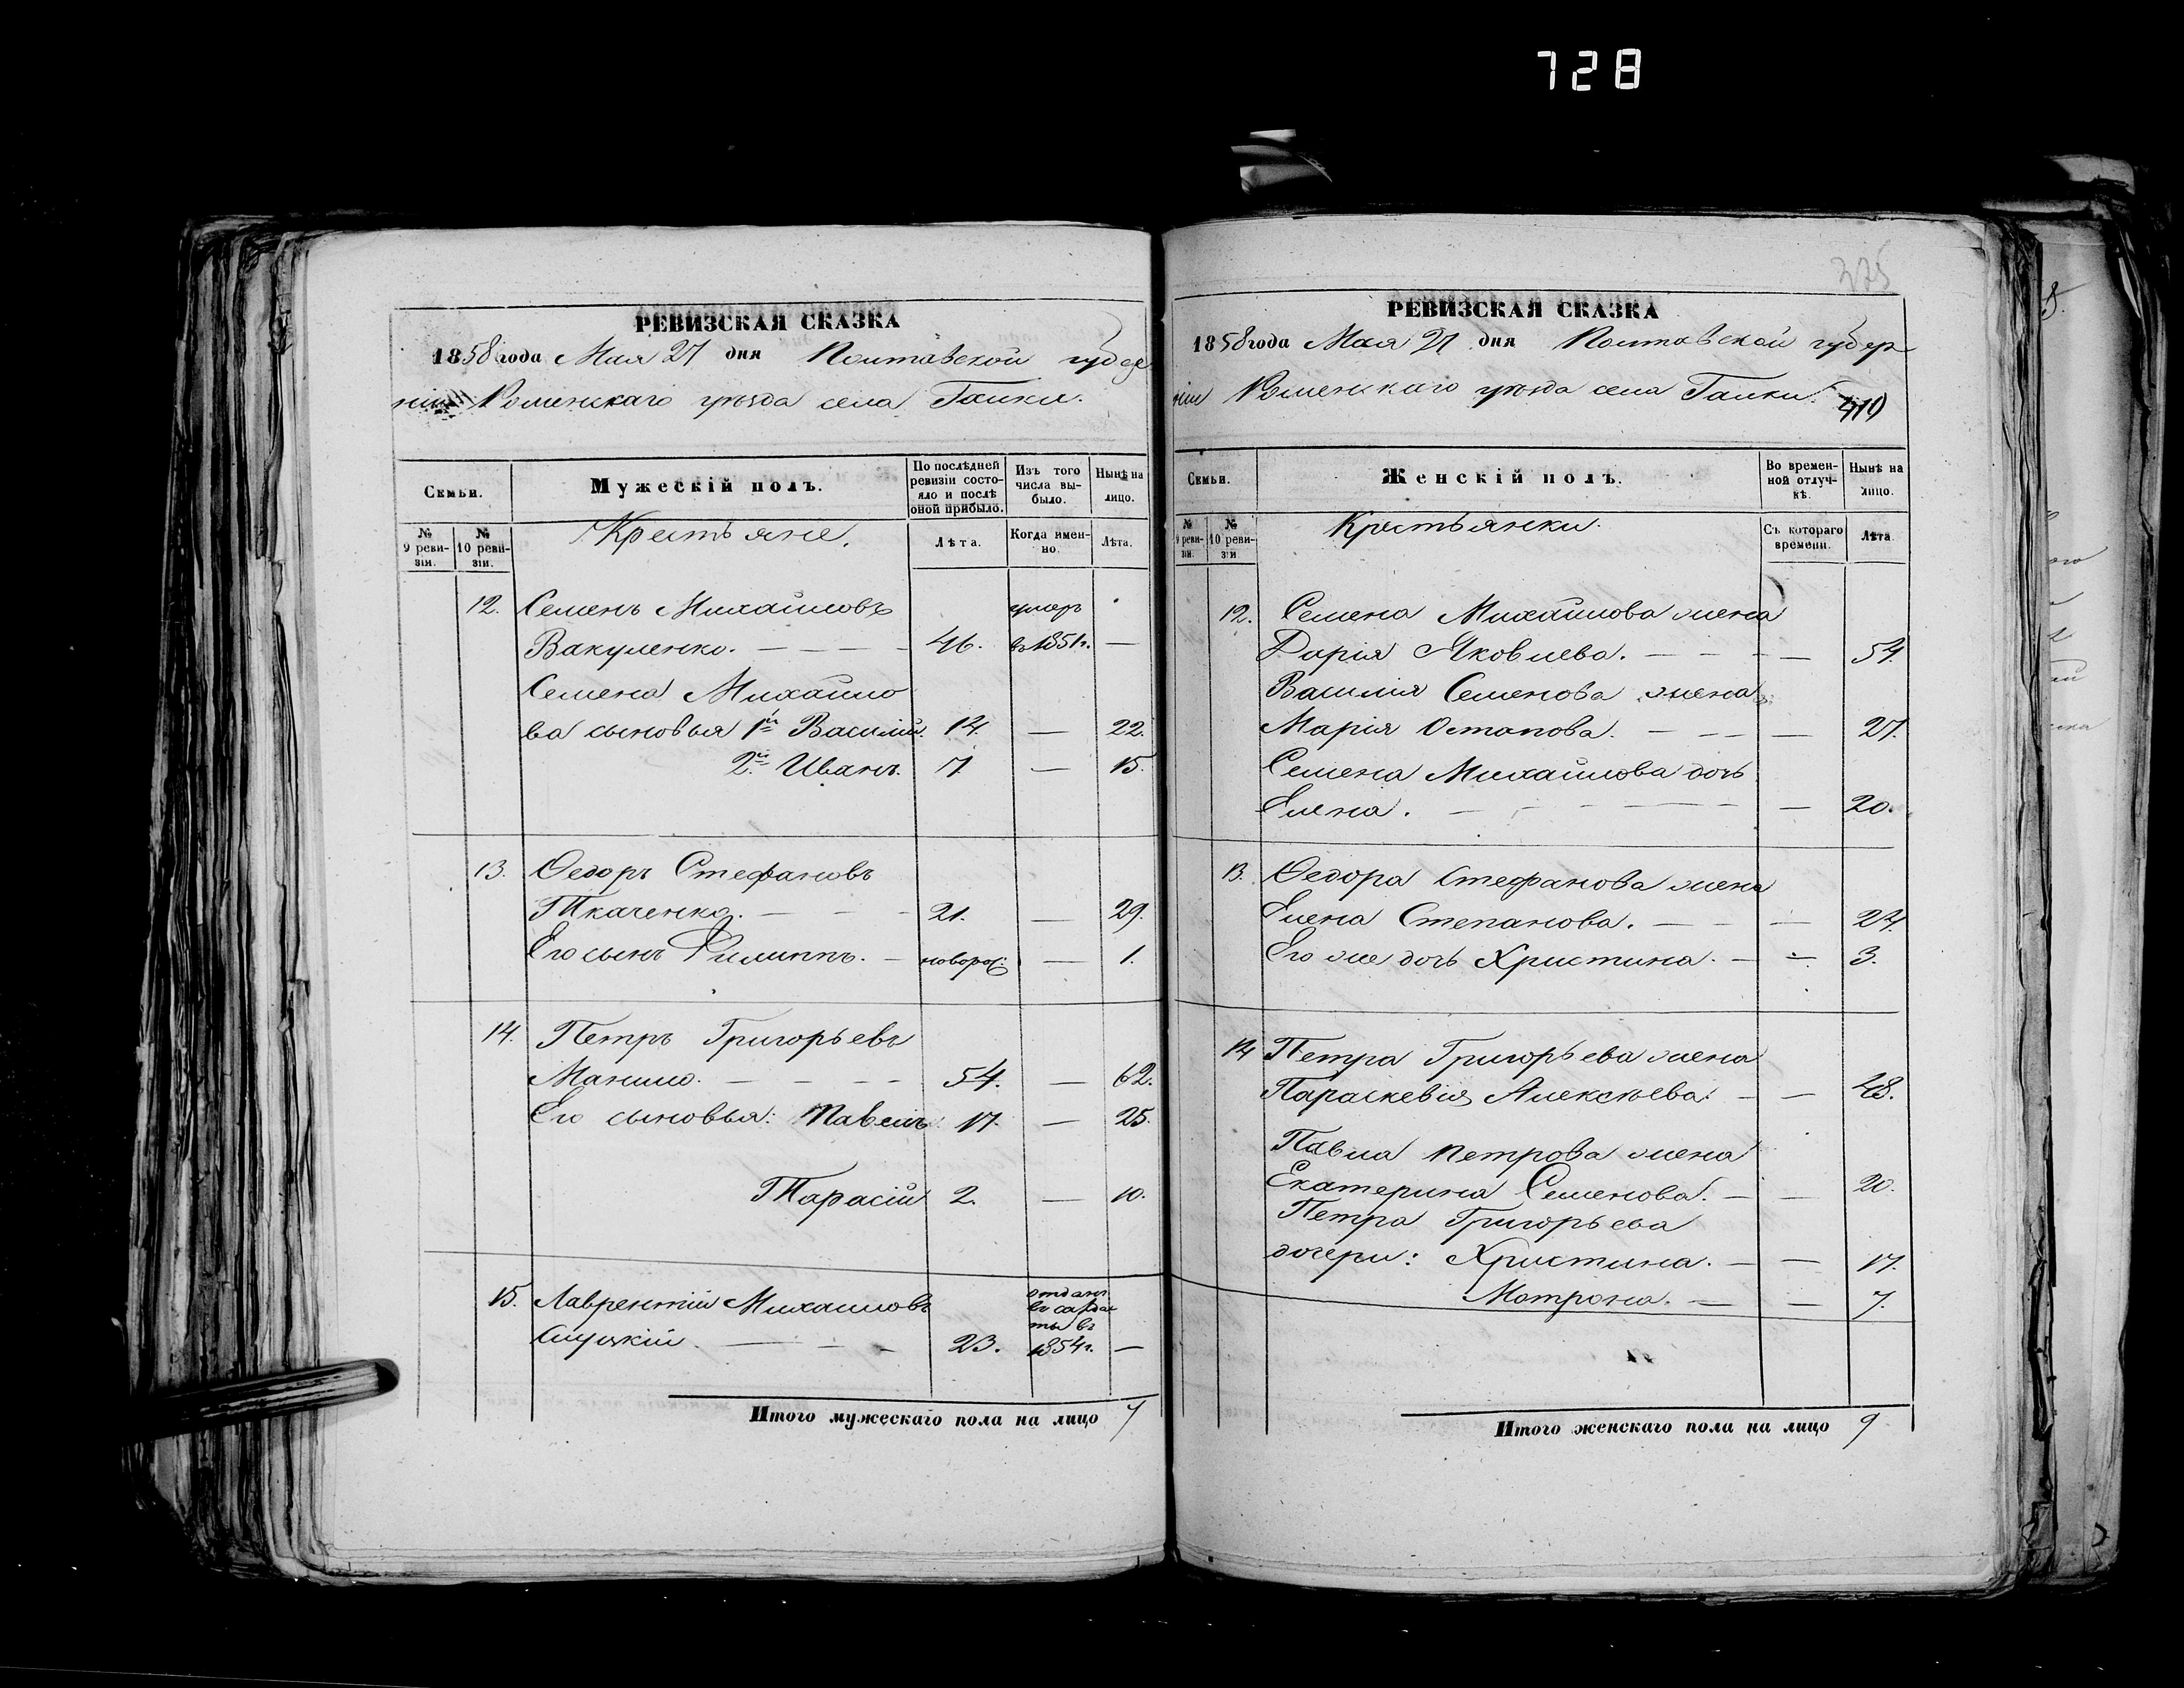 728
РЕВИЗСКАЯ СКАЗКА
1858 года Мая 27 дня Полтавской губер
ніи Роменскаго уѣзда села Галки.
Семьи.
Мужескій полъ.
По послѣдней ревизіи состояло и послѣ оной прибыло.
Изъ того числа выбыло.
Нынѣ на лицо.
№ 9 ревизіи.
№ 10 ревизіи.
Крестьяне.
Лѣта.
Когда именно.
Лѣта.
12. Семенъ Михайловъ умеръ
Вакуленко. — — — 46. въ 1851 г. —
Семена Михайло
ва сыновья 1й Василій. 14. — 22.
2й Иванъ. 7. — 15.
13. Ѳедоръ Стефановъ
Ткаченко. — — — 21. — 29.
Его сынъ Филиппъ. — новорож: — 1.
14. Петръ Григорьевъ
Манило. — — — — 54. — 62.
Его сыновья: Павелъ 17. — 25.
Тарасій 2. — 10.
15. Лаврентій Михайловъ отданъ въ салдаты въ
Слуцкій. — — — 23. 1854 г. —
Итого мужескаго пола на лицо 7
375
РЕВИЗСКАЯ СКАЗКА
1858 года Мая 27 дня Полтавской губер
ніи Роменскаго уѣзда села Галки. 419
Семьи.
Женскій полъ.
Во временной отлучкѣ.
Нынѣ на лицо.
№ 9 ревизіи.
№ 10 ревизіи.
Крестьянки.
Съ котораго времени.
Лѣта.
12. Семена Михайлова жена
Дарія Яковлева. — — — — 54.
Василія Семенова жена
Марія Остапова. — — — — 27.
Семена Михайлова дочь
Елена. — — — — — 20.
13. Ѳедора Стефанова жена
Елена Степанова. — — — 24.
Его же дочь Христина. — — 3.
14 Петра Григорьева жена
Параскевія Алексѣева: — — 48.
Павла Петрова жена
Екатерина Семенова. — — 20.
Петра Григорьева
дочери: Христина. — — 17.
Матрона. — — 7.
Итого женскаго пола на лицо 9